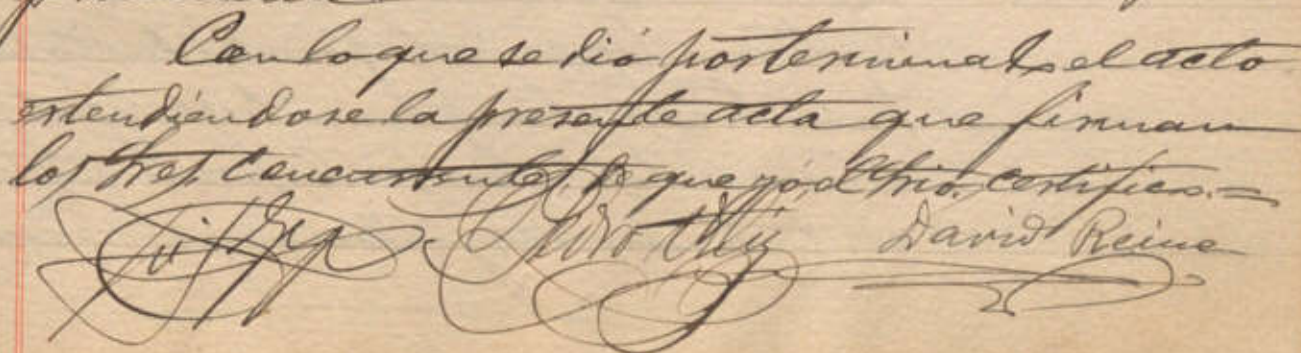 Con lo que se dió por terminado el acto
estendiéndose la presente acta que firman
los Sres. Concurrentes, de que yó, el Srio. certifico.=
Pedro Ruiz David Reina